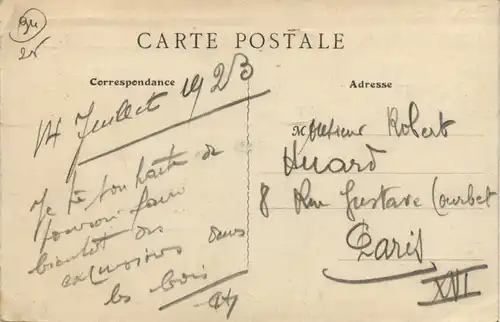 94
25
CARTE POSTALE
Correspondance
Adresse
14 Juillet 1923
Je te souhaite de
pouvoir faire
bientôt des
excursions dans
les bois
Monsieur Robert
Huard
8 Rue Gustave Courbet
Paris
XVI